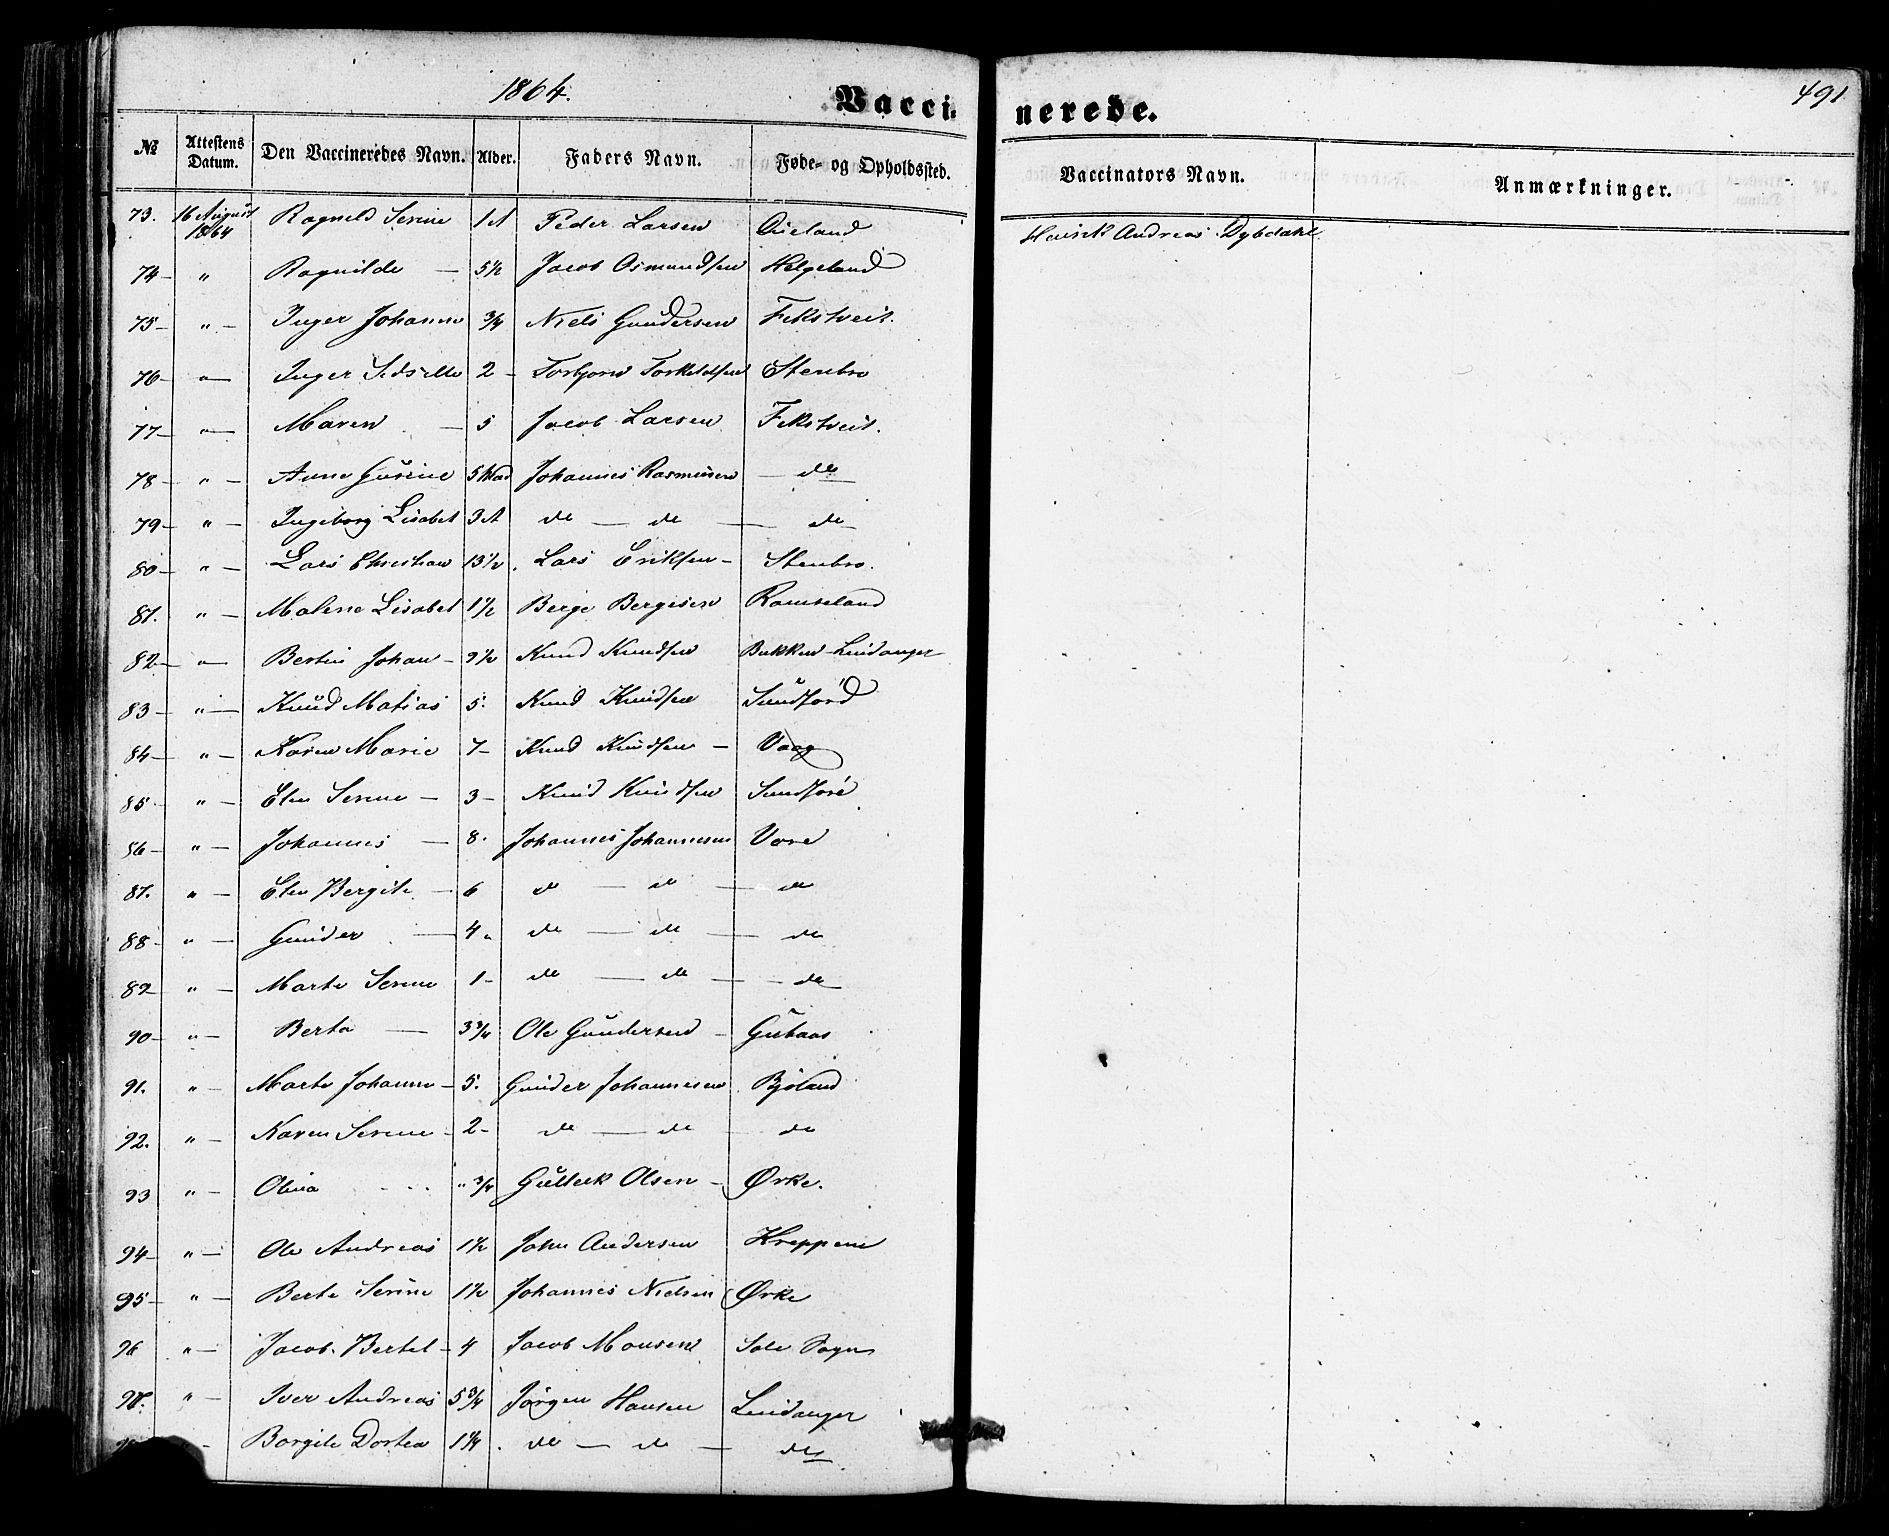 1864.
491
Vacci-
nerede.
№ Attestens Datum. Den Vaccineredes Navn. Alder. Faders Navn. Føde- og Opholdssted. Vaccinators Navn. Anmærkninger.
73. 16 August 1864 Ragnild Serine 1 A Peder Larsen Henrik Andreas Dybdahl.
74 – " Ragnilde — 5½ Jacob Osmundsen Helgeland
75 – " – Inger Johanne ¾ Niels Gundersen Fikstveit.
76 – " — Inger Sidselle 2 – Torbjorn Torkeldsen Stenbro
77 – " — Maren — 5 Jacob Larsen Fikstveit.
78 – " – Anne Gurine 5 Maad Johannes Rasmusen — do
79 – " – Ingeborg Lisabet 3 A do — do — do
80 – " – Lars Christian 13½ Lars Eriksen – Stenbro.
81. " – Malene Lisabet 1½ Berge Bergesen Ramseland
82 – " — Bertin Johan – 9½ Knud Knudsen Bakken Lindanger
83 – " — Knud Matias 5. Knud Knudsen Sundførd
84 – " – Karen Marie 7 – Knud Knudsen – Vaag
85 – " – Elen Serine – 3 – Knud Knudsen Sundføre
86 – " – Johannes — 8. Johannes Johannesen Vore
87. " – Elen Bergite – 6 do — do — do
88 – " — Gunder — 4 " do — do — do
89 – " – Marte Serine 1 – do — do — do
90 – " – Berta — 3¾ Ole Gundersen –
91. " – Marte Johanne – 5. Gunder Johannesen Bjoland
92. " – Karen Serine – 2 – do — do do
93 " – Olina " ¾ Gullerk Olsen – Ørke.
94 – " – Ole Andreas 1½ John Andersen Kreppene
95 – " – Berte Serine 1½ Johannes Nielsen Ørke
96 " – Jacob Bertel – 4 Jacob Monsen Sole Sogn
97. " – Iver Andreas 5¾ Jørgen Hansen Lindanger
– Borgite Dortea 1¼ . do — do — do